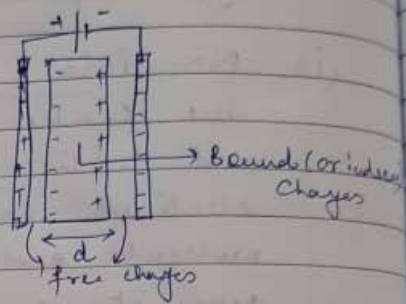 + -
- +
- +
- +
- +
- +
Bound (or induced)
Charges
d
free charges